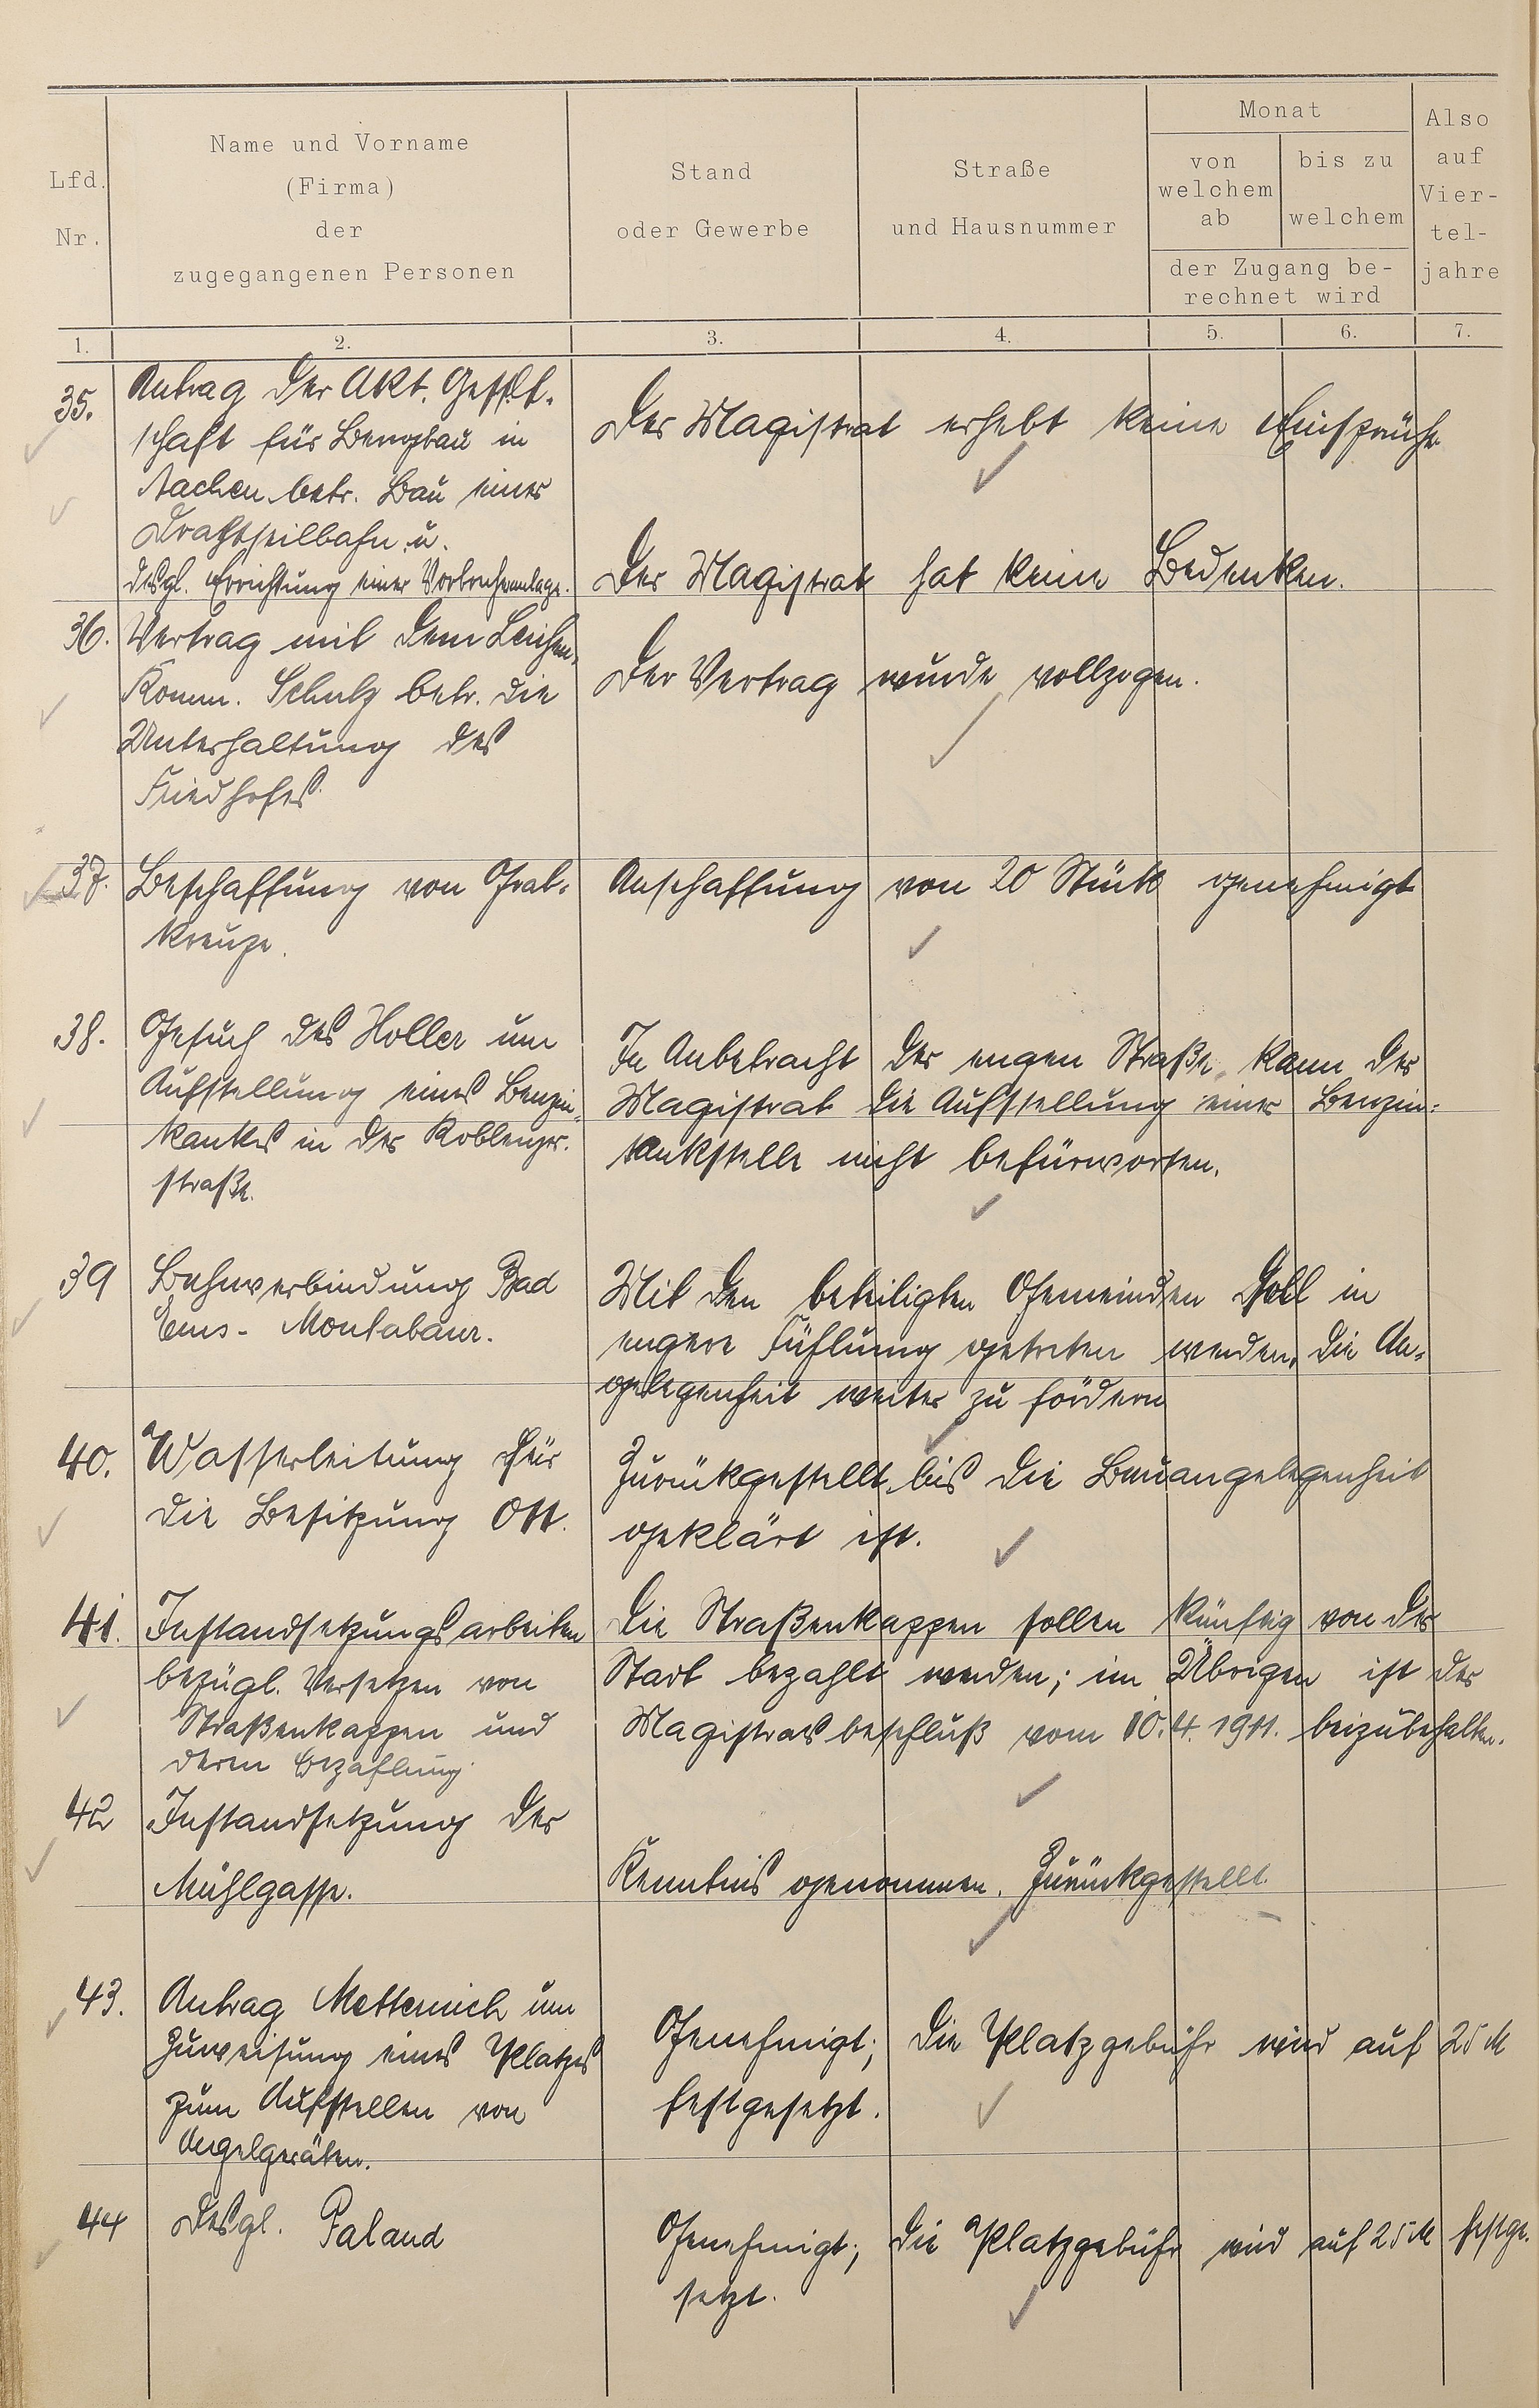 Lfd.
Nr.
Name und Vorname
(Firma)
der
zugegangenen Personen
Stand
oder Gewerbe
Straße
und Hausnummer
Monat
von
welchem
ab
bis zu
welchem
der Zugang be-
rechnet wird
Also
auf
Vier-
tel-
jahre
1. 2. 3. 4. 5. 6. 7.
35. Antrag der Akt. Gesell-
schaft für Bergbau in
Aachen betr. Bau einer
Drahtseilbahn u.
desgl. Errichtung einer Vorbrecheranlage.
Der Magistrat erhebt keine Einsprüche
Der Magistrat hat keine Bedenken.
36. Vertrag mit dem Leichen-
Komm. Schulz betr. die
Unterhaltung des
Friedhofes
Der Vertrag wurde vollzogen.
37. Beschaffung von Grab-
kreuze.
Anschaffung von 20 Stück genehmigt
38. Gesuch des Holler um
Aufstellung eines Benzin-
tankes in der Koblenzer-
straße.
In Anbetracht der engen Straße, kann der
Magistrat die Aufstellung einer Benzin-
tankstelle nicht befürworten.
39 Bahnverbindung Bad
Ems - Montabaur.
Mit den beteiligten Gemeinden Soll in
engere Fühlung getreten werden, die An-
gelegenheit weiter zu fördern
40. Wasserleitung für
die Besitzung Ott.
Zurückgestellt, bis die Bauangelegenheit
geklärt ist.
41. Instandsetzungsarbeiten
bezügl. Versetzen von
Straßenkappen und
deren Bezahlung.
Die Straßenkappen sollen künftig von der
Stadt bezahlt werden; im Übrigen ist der
Magistratsbeschluß vom 10.4.1911. beizubehalten.
42 Instandsetzung der
Mühlgasse.
Kenntnis genommen. Zurückgestellt
43. Antrag Metternich um
Zuweisung eines Platzes
zum Aufstellen von
Angelgeräten.
Genehmigt; die Platzgebühr wird auf 25 M
festgesetzt.
44 Desgl. Faland
Genehmigt; die Platzgebühr wird auf 25 M festge-
setzt.